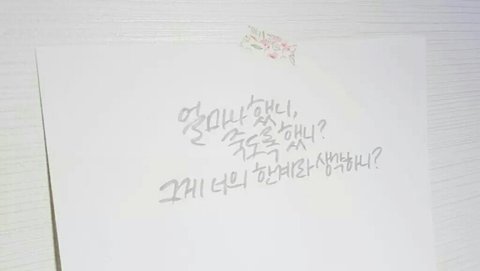 얼마나 했니,
죽도록 했니?
그게 너의 한계라 생각하니?